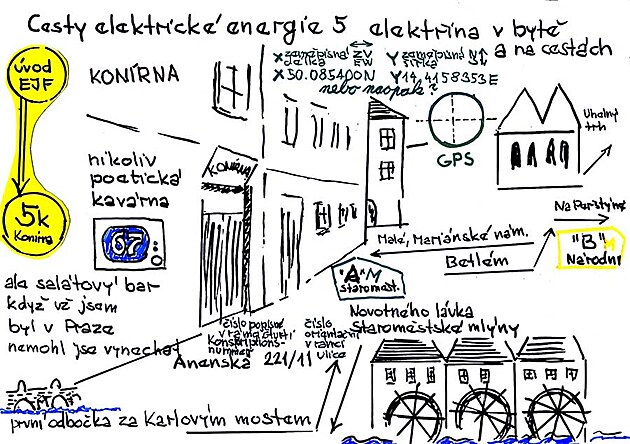 Cesty elektrické energie 5 elektřina v bytě
a na cestách
úvod
EJF
KONÍRNA
X zeměpisná délka ZV EW Y zeměpisná šířka
X50.085400N Y14.4158353E
nebo naopak?
GPS
Uhelný
trh
nikoliv
poetická
kavárna
KONÍRNA
5k
Konírna
67
Na Perštýně
"B" M
Národní
Malé, Mariánské nám.
Betlém
"A" M
staroměst.
ale salátový bar
když už jsem
byl v Praze
nemohl jse vynechat
číslo popisné
v rámci čtvrti
Konskriptions-
nummer
číslo
orientační
v rámci
ulice
Anenská 221/11
Novotného lávka
Staroměstské mlýny
první odbočka za Karlovým mostem